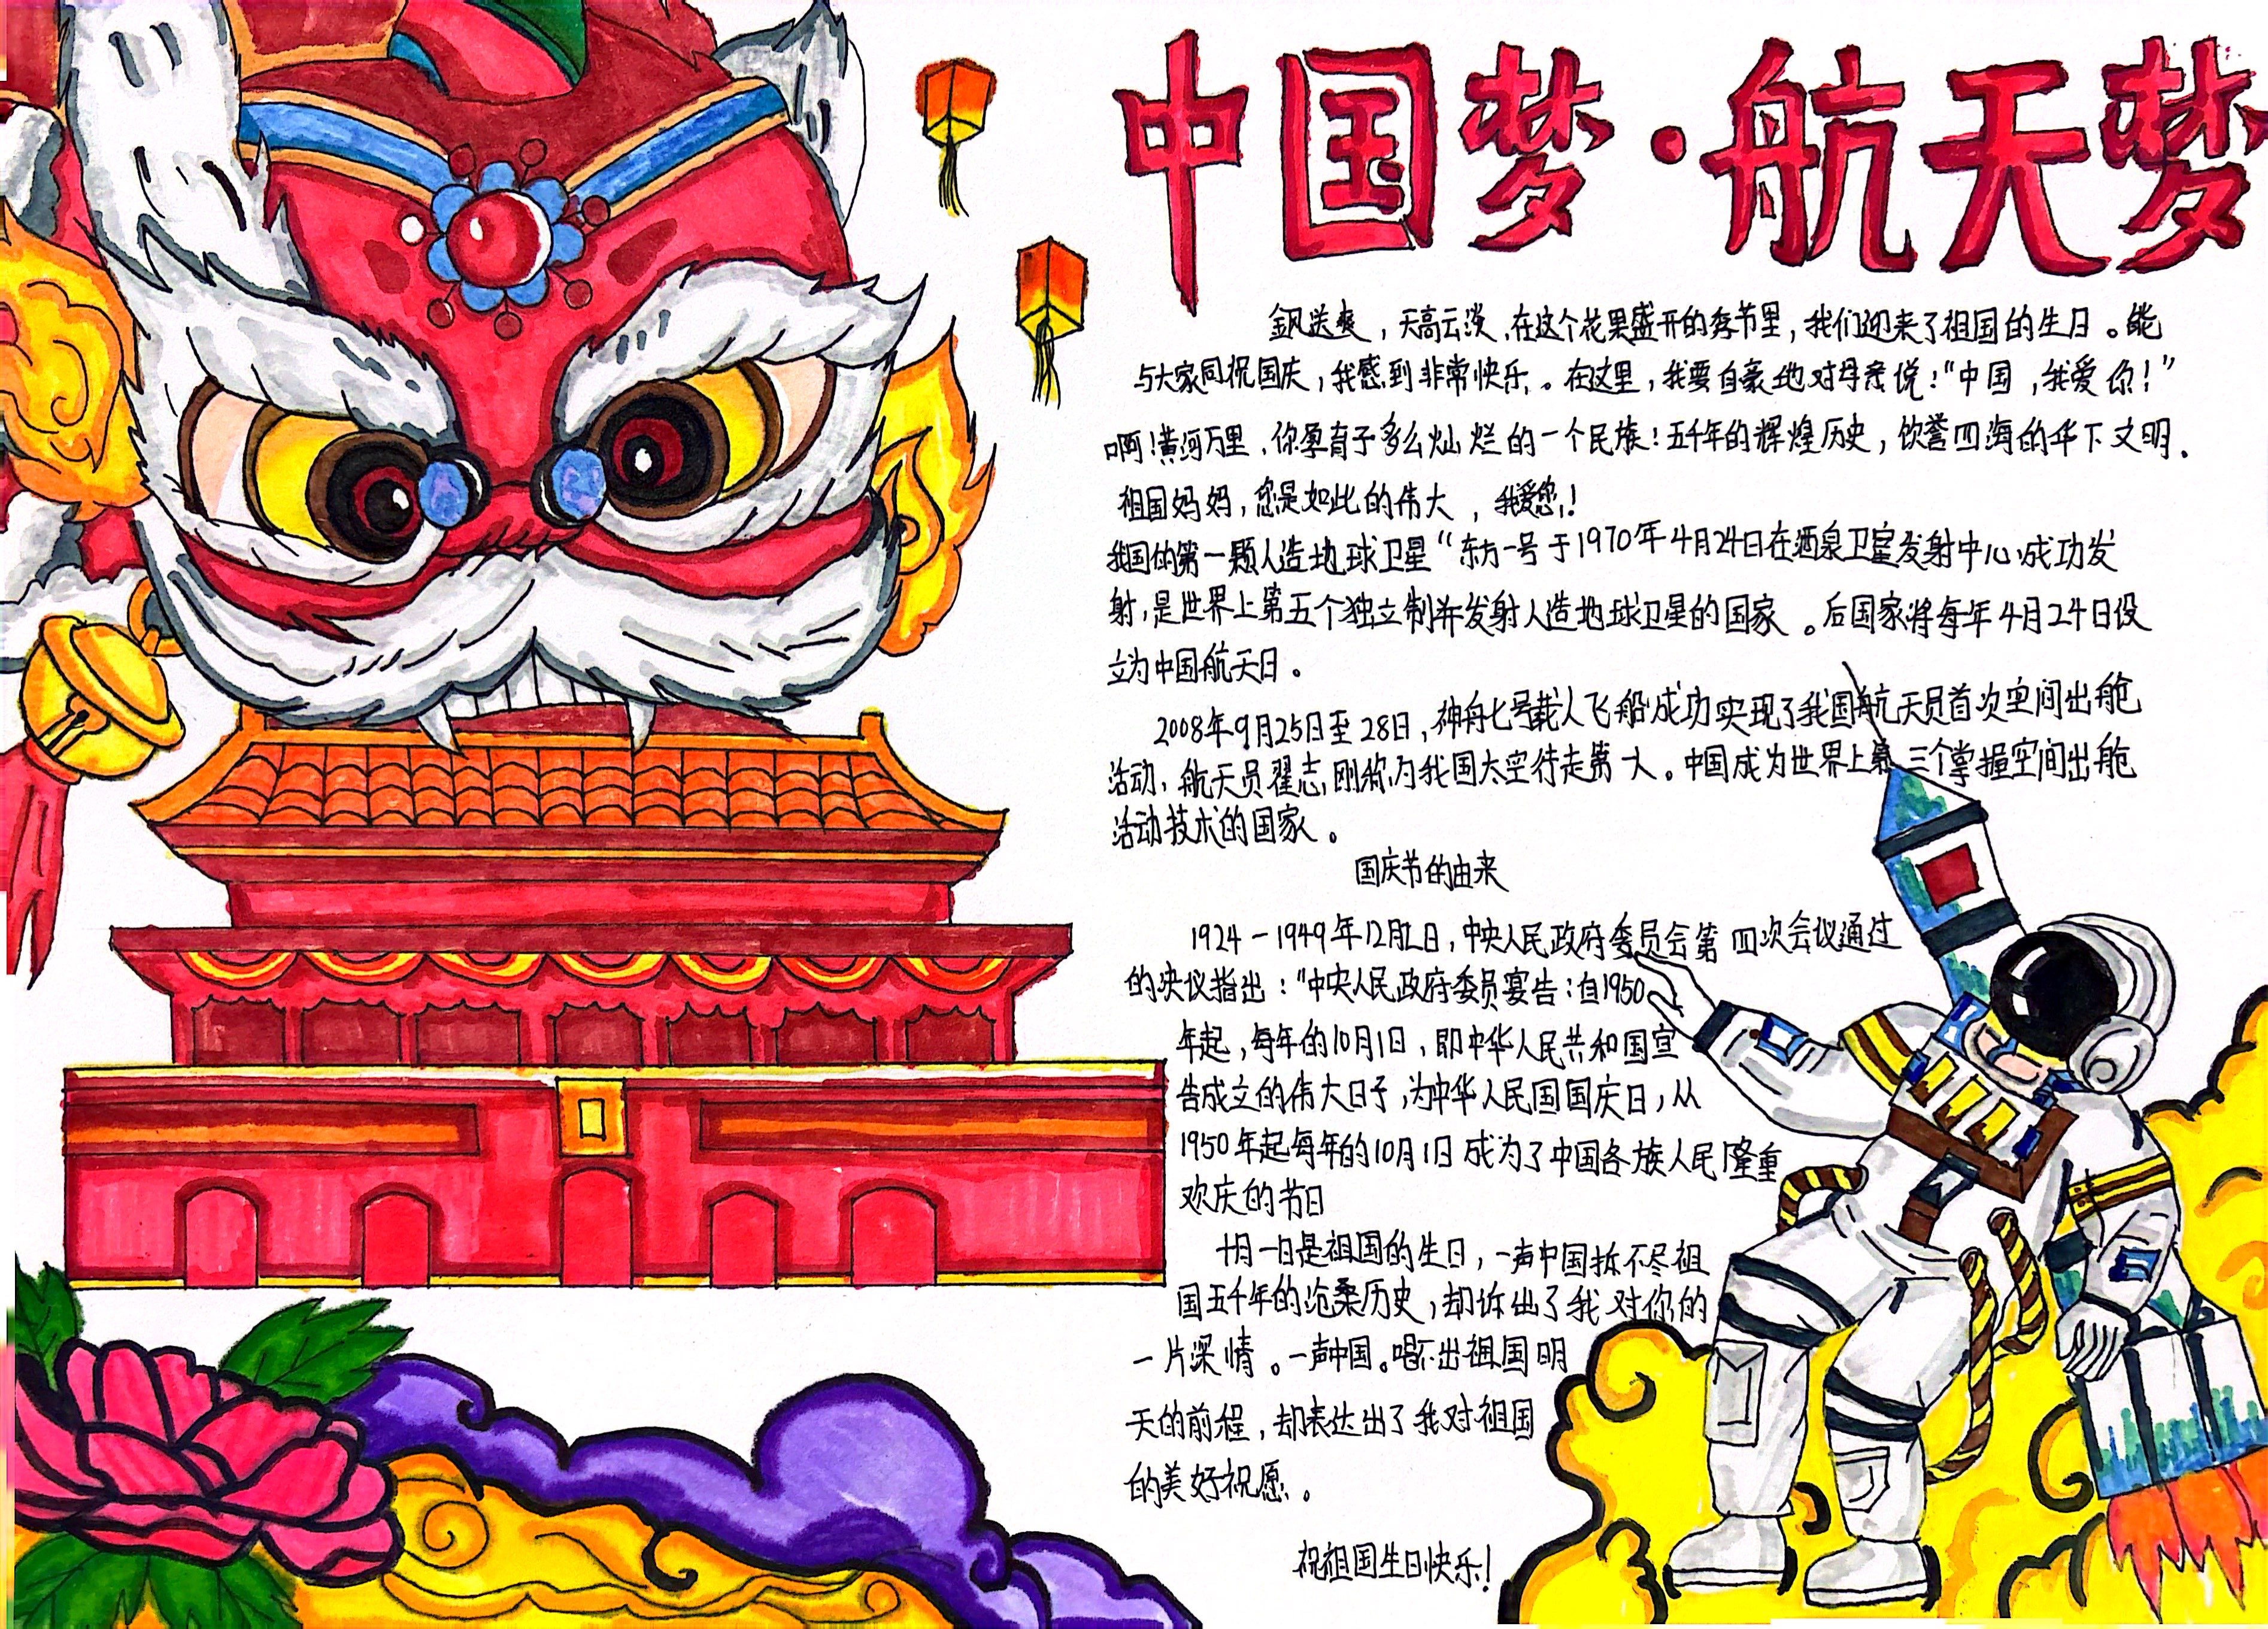 中国梦·航天梦
金风送爽，天高云淡，在这个花果盛开的季节里，我们迎来了祖国的生日。能
与大家同祝国庆，我感到非常快乐。在这里，我要自豪地对母亲说！“中国，我爱你！”
啊！黄河万里，你孕育了多么灿烂的一个民族！五千年的辉煌历史，饮誉四海的华下文明.
祖国妈妈，您是如此的伟大，我爱您！
我国的第一颗人造地球卫星“东方一号于1970年4月24日在酒泉卫星发射中心成功发
射，是世界上第五个独立制并发射人造地球卫星的国家。后国家将每年4月24日设
立为中国航天日。
2008年9月25日至28日，神舟七号载人飞船成功实现了我国航天员首次空间出舱
活动，航天员翟志刚称为我国太空行走第一人。中国成为世界上第三个掌握空间出舱
活动技术的国家。
国庆节的由来
1924-1949年12月2日，中央人民政府委员会第四次会议通过
的决议指出：“中央人民政府委员宴告：自1950
年起，每年的10月1日，即中华人民共和国宣
告成立的伟大日子，为中华人民国国庆日，从
1950年起每年的10月1日成为了中国各族人民隆重
欢庆的节日
十月一日是祖国的生日，一声中国拆不尽祖
国五千年的沧桑历史，却诉出了我对你的
一片深情。一声中国。唱不出祖国明
天的前程，却表达出了我对祖国
的美好祝愿。
祝祖国生日快乐！